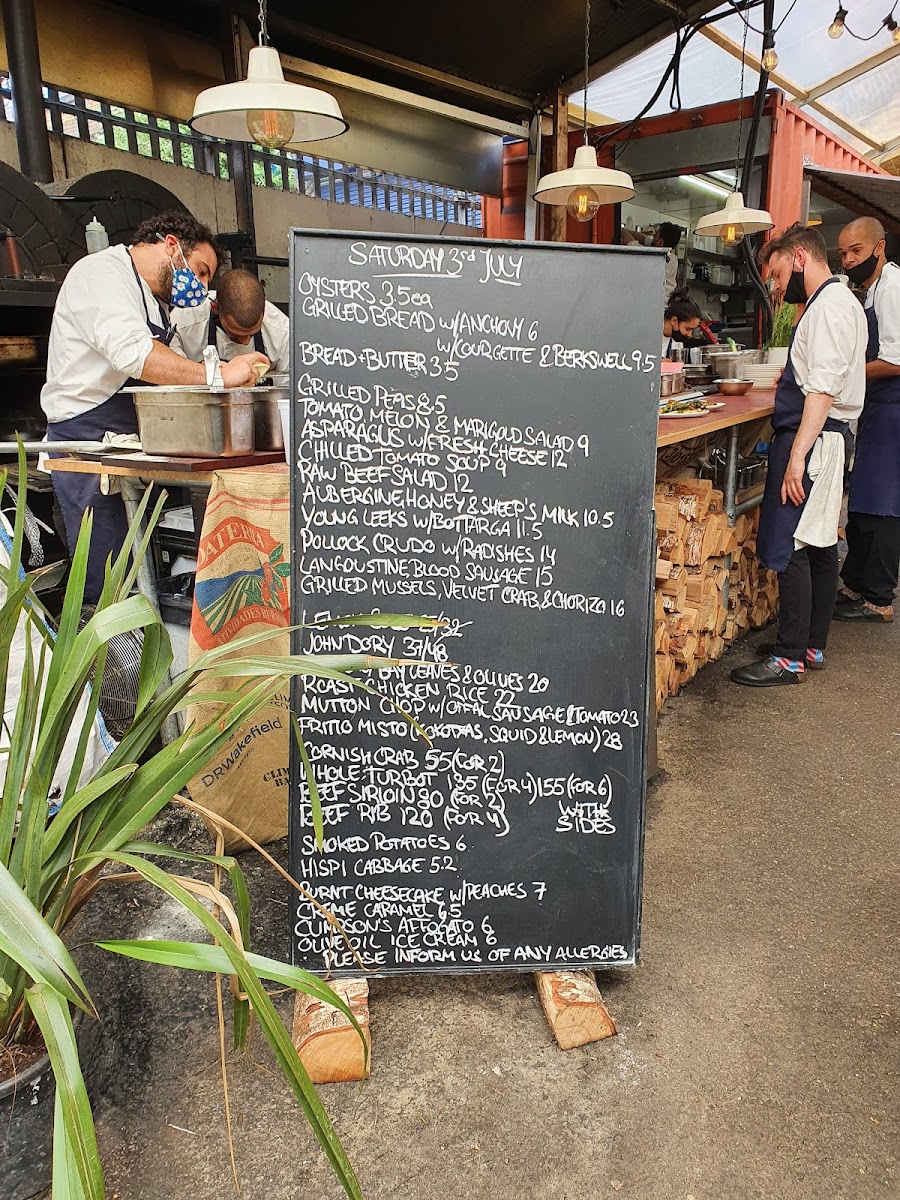 SATURDAY 3rd JULY
OYSTERS 3.5ea
GRILLED BREAD W/ANCHOVY 6
W/COURGETTE & BERKSWELL 9.5
BREAD + BUTTER 3.5
GRILLED PEAS 8.5
TOMATO, MELON & MARIGOLD SALAD 9
ASPARAGUS W/FRESH CHEESE 12
CHILLED TOMATO SOUP 9
RAW BEEF SALAD 12
AUBERGINE, HONEY & SHEEP'S MILK 10.5
YOUNG LEEKS W/BOTTARGA 11.5
POLLOCK CRUDO W/RADISHES 14
LANGOUSTINE BLOOD SAUSAGE 15
GRILLED MUSSELS, VELVET CRAB, & CHORIZO 16
JOHN DORY 37/48
BAY LEAVES & OLIVES 20
ROAST CHICKEN RICE 22
MUTTON CHOP W/OFFAL SAUSAGE & TOMATO 23
FRITTO MISTO (KOKOTXAS, SQUID & LEMON) 28
CORNISH CRAB 55 (FOR 2)
WHOLE TURBOT 135 (FOR 4) 155 (FOR 6)
BEEF SIRLOIN 80 (FOR 2)
BEEF RIB 120 (FOR 4)
WITH SIDES
SMOKED POTATOES 6
HISPI CABBAGE 5.2
BURNT CHEESECAKE W/PEACHES 7
CRÈME CARAMEL 6.5
CLIMPSON'S AFFOGATO 6
OLIVE OIL ICE CREAM 6
PLEASE INFORM US OF ANY ALLERGIES
DATERRA
ATIVIDADES RURAIS
DRWakefield